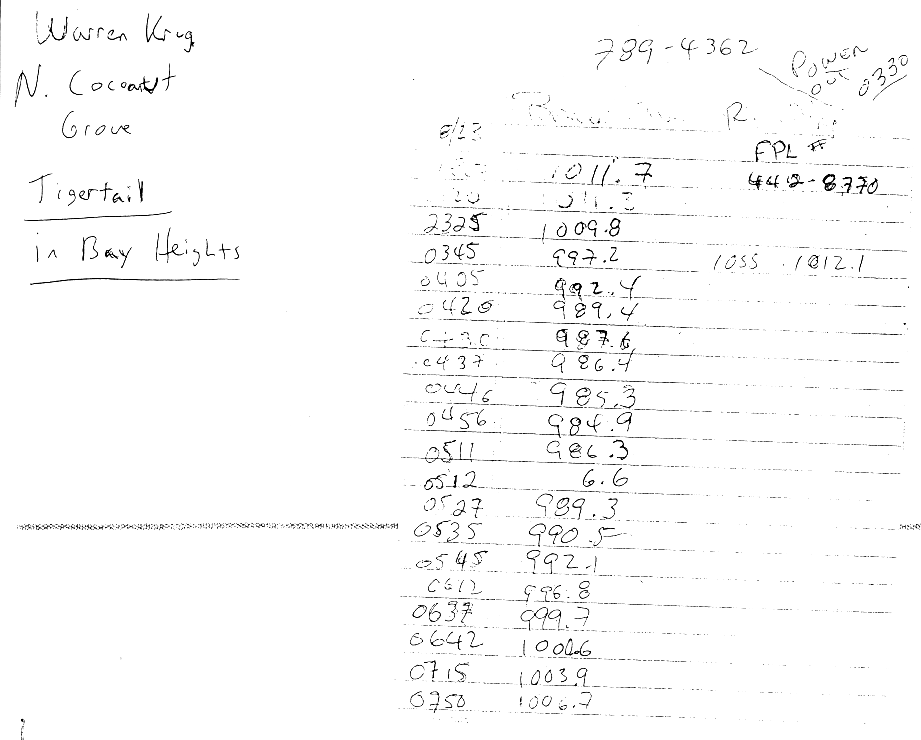 Warren Krug
N. Cocoanut
Grove
Tigertail
in Bay Heights
789-4362
Power
out
0330
8/23
FPL #
442-8770
1011.7
2325 1009.8
0345 997.2 loss 1012.1
0405 992.4
0420 989.4
987.6
0437 986.4
0446 985.3
0456 984.9
0511 986.3
0512 6.6
0527 989.3
0535 990.5
0545 992.1
0612 996.8
0637 999.7
0642 1000.6
0715 1003.9
0750 1006.7